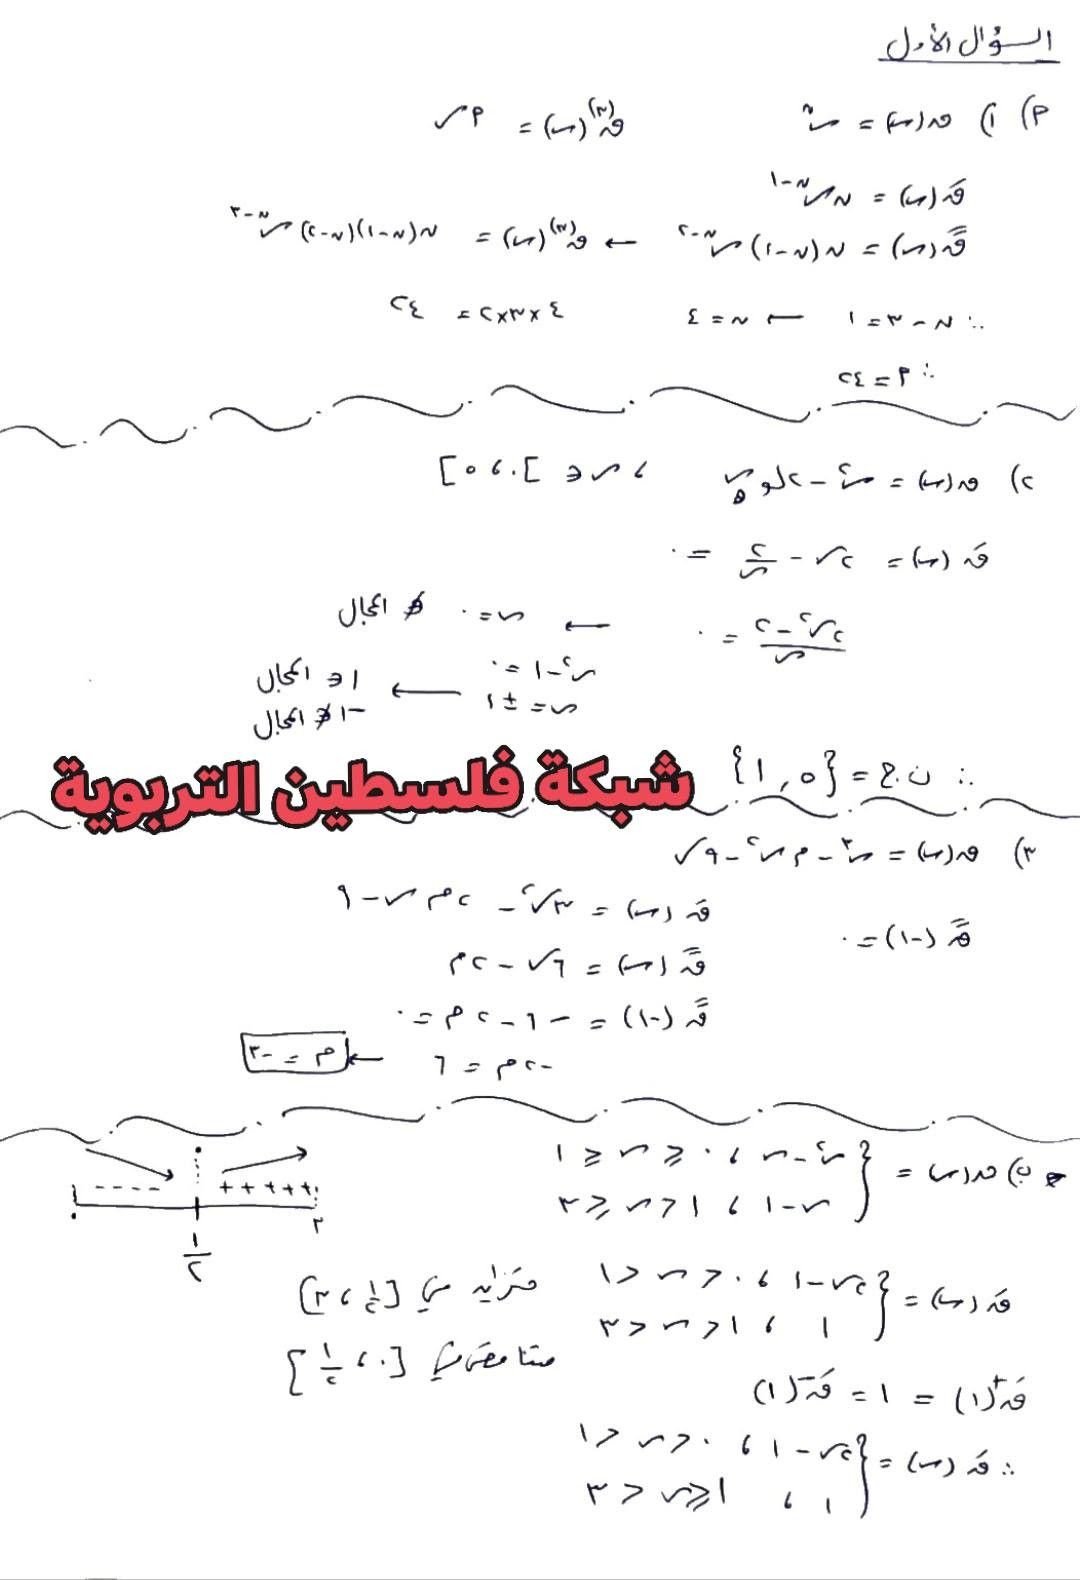 السؤال الأول
أ) ١) ق(س) = س^ن    ق^(٣)(س) = أس
قَ(س) = ن س^(ن-١)
قً(س) = ن(ن-١) س^(ن-٢) ← ق^(٣)(س) = ن(ن-١)(ن-٢) س^(ن-٣)
∴ ن - ٣ = ١ ← ن = ٤    ٤×٣×٢ = ٢٤
∴ أ = ٢٤
٢) ق(س) = س² - ٢لو_هـ س ، س ∈ ]٠ ، ٥]
قَ(س) = ٢س - ٢/س = ٠
(٢س² - ٢)/س = ٠ ← س = ٠ ∉ المجال
س² - ١ = ٠
س = ±١ ← ١ ∈ المجال
-١ ∉ المجال
∴ ن.ح = {٥ , ١}
شبكة فلسطين التربوية
٣) ق(س) = س³ - م س² - ٩س
قَ(س) = ٣س² - ٢م س - ٩
قً(-١) = ٠
قً(س) = ٦س - ٢م
قً(-١) = -٦ - ٢م = ٠
-٢م = ٦ ← م = -٣
ب) ق(س) = { س² - س ، ٠ ≤ س ≤ ١
س - ١ ، ١ < س ≤ ٣
- - - - + + + + +
٠ ١/٢ ٣
قَ(س) = { ٢س - ١ ، ٠ < س < ١
١ ، ١ < س < ٣
متزايد في [١/٢ ، ٣]
متناقص في [٠ ، ١/٢]
قَ⁺(١) = ١ = قَ⁻(١)
∴ قَ(س) = { ٢س - ١ ، ٠ < س < ١
١ ، ١ ≤ س < ٣